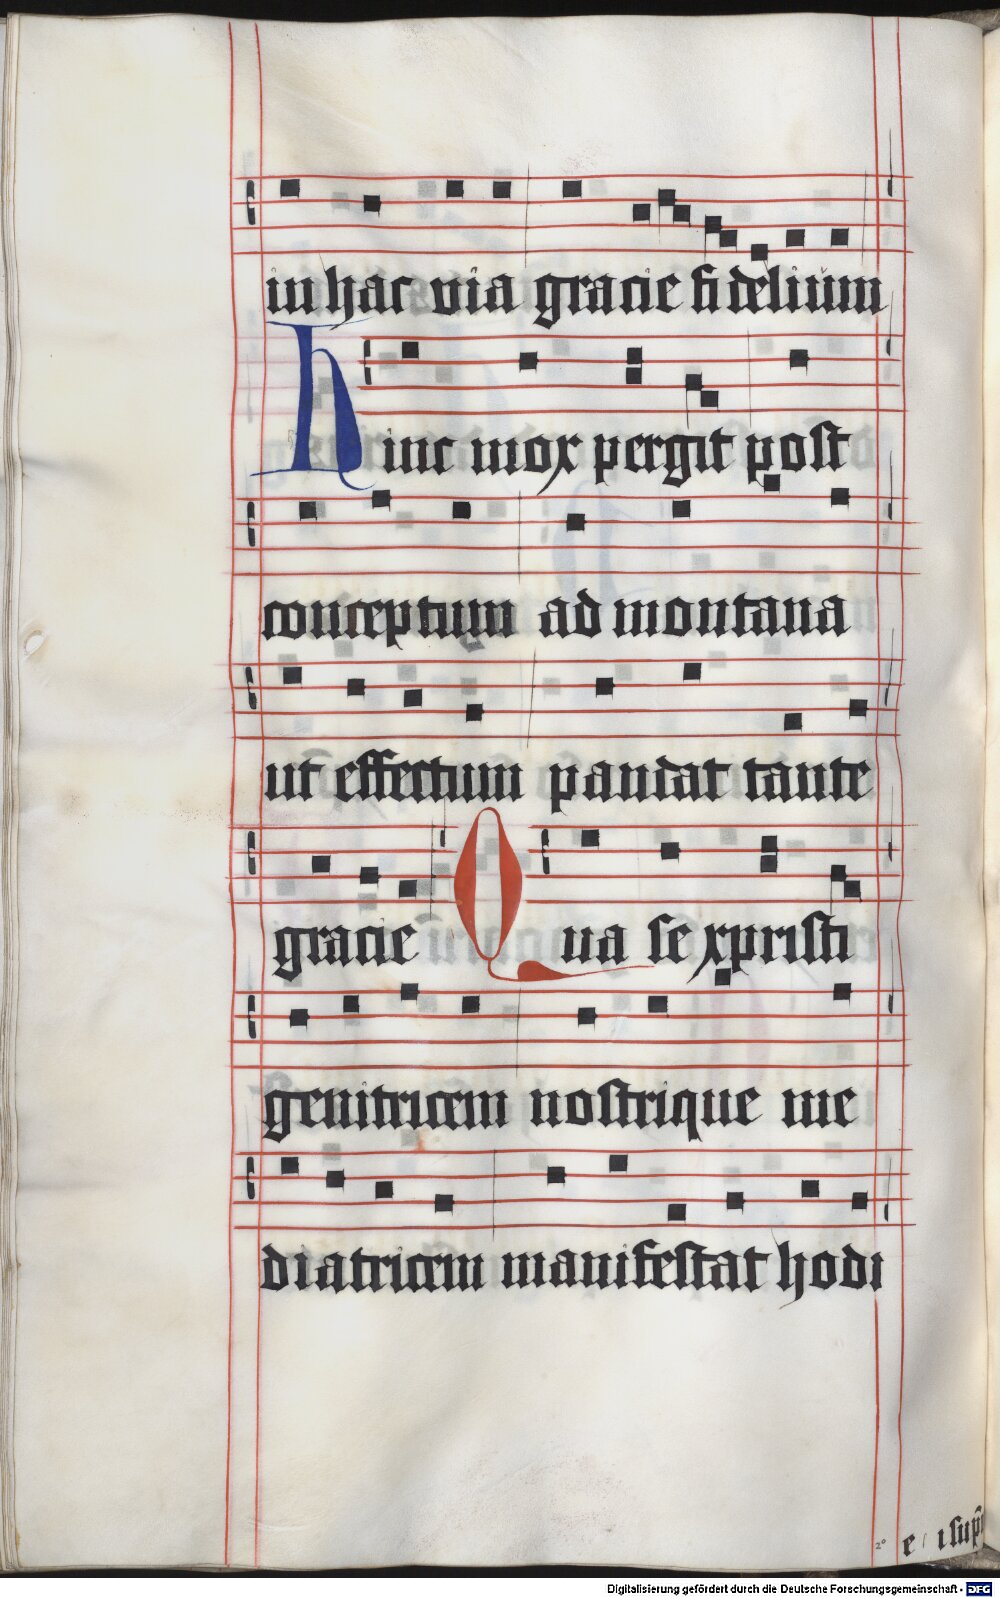 in hac via gracie fidelium
Hinc mox pergit post
conceptum ad montana
ut effectum pandat tante
gracie Qua se xpristi
genitricem nostrique me
diatricem manifestat hodi
2º
Digitalisierung gefördert durch die Deutsche Forschungsgemeinschaft - DFG